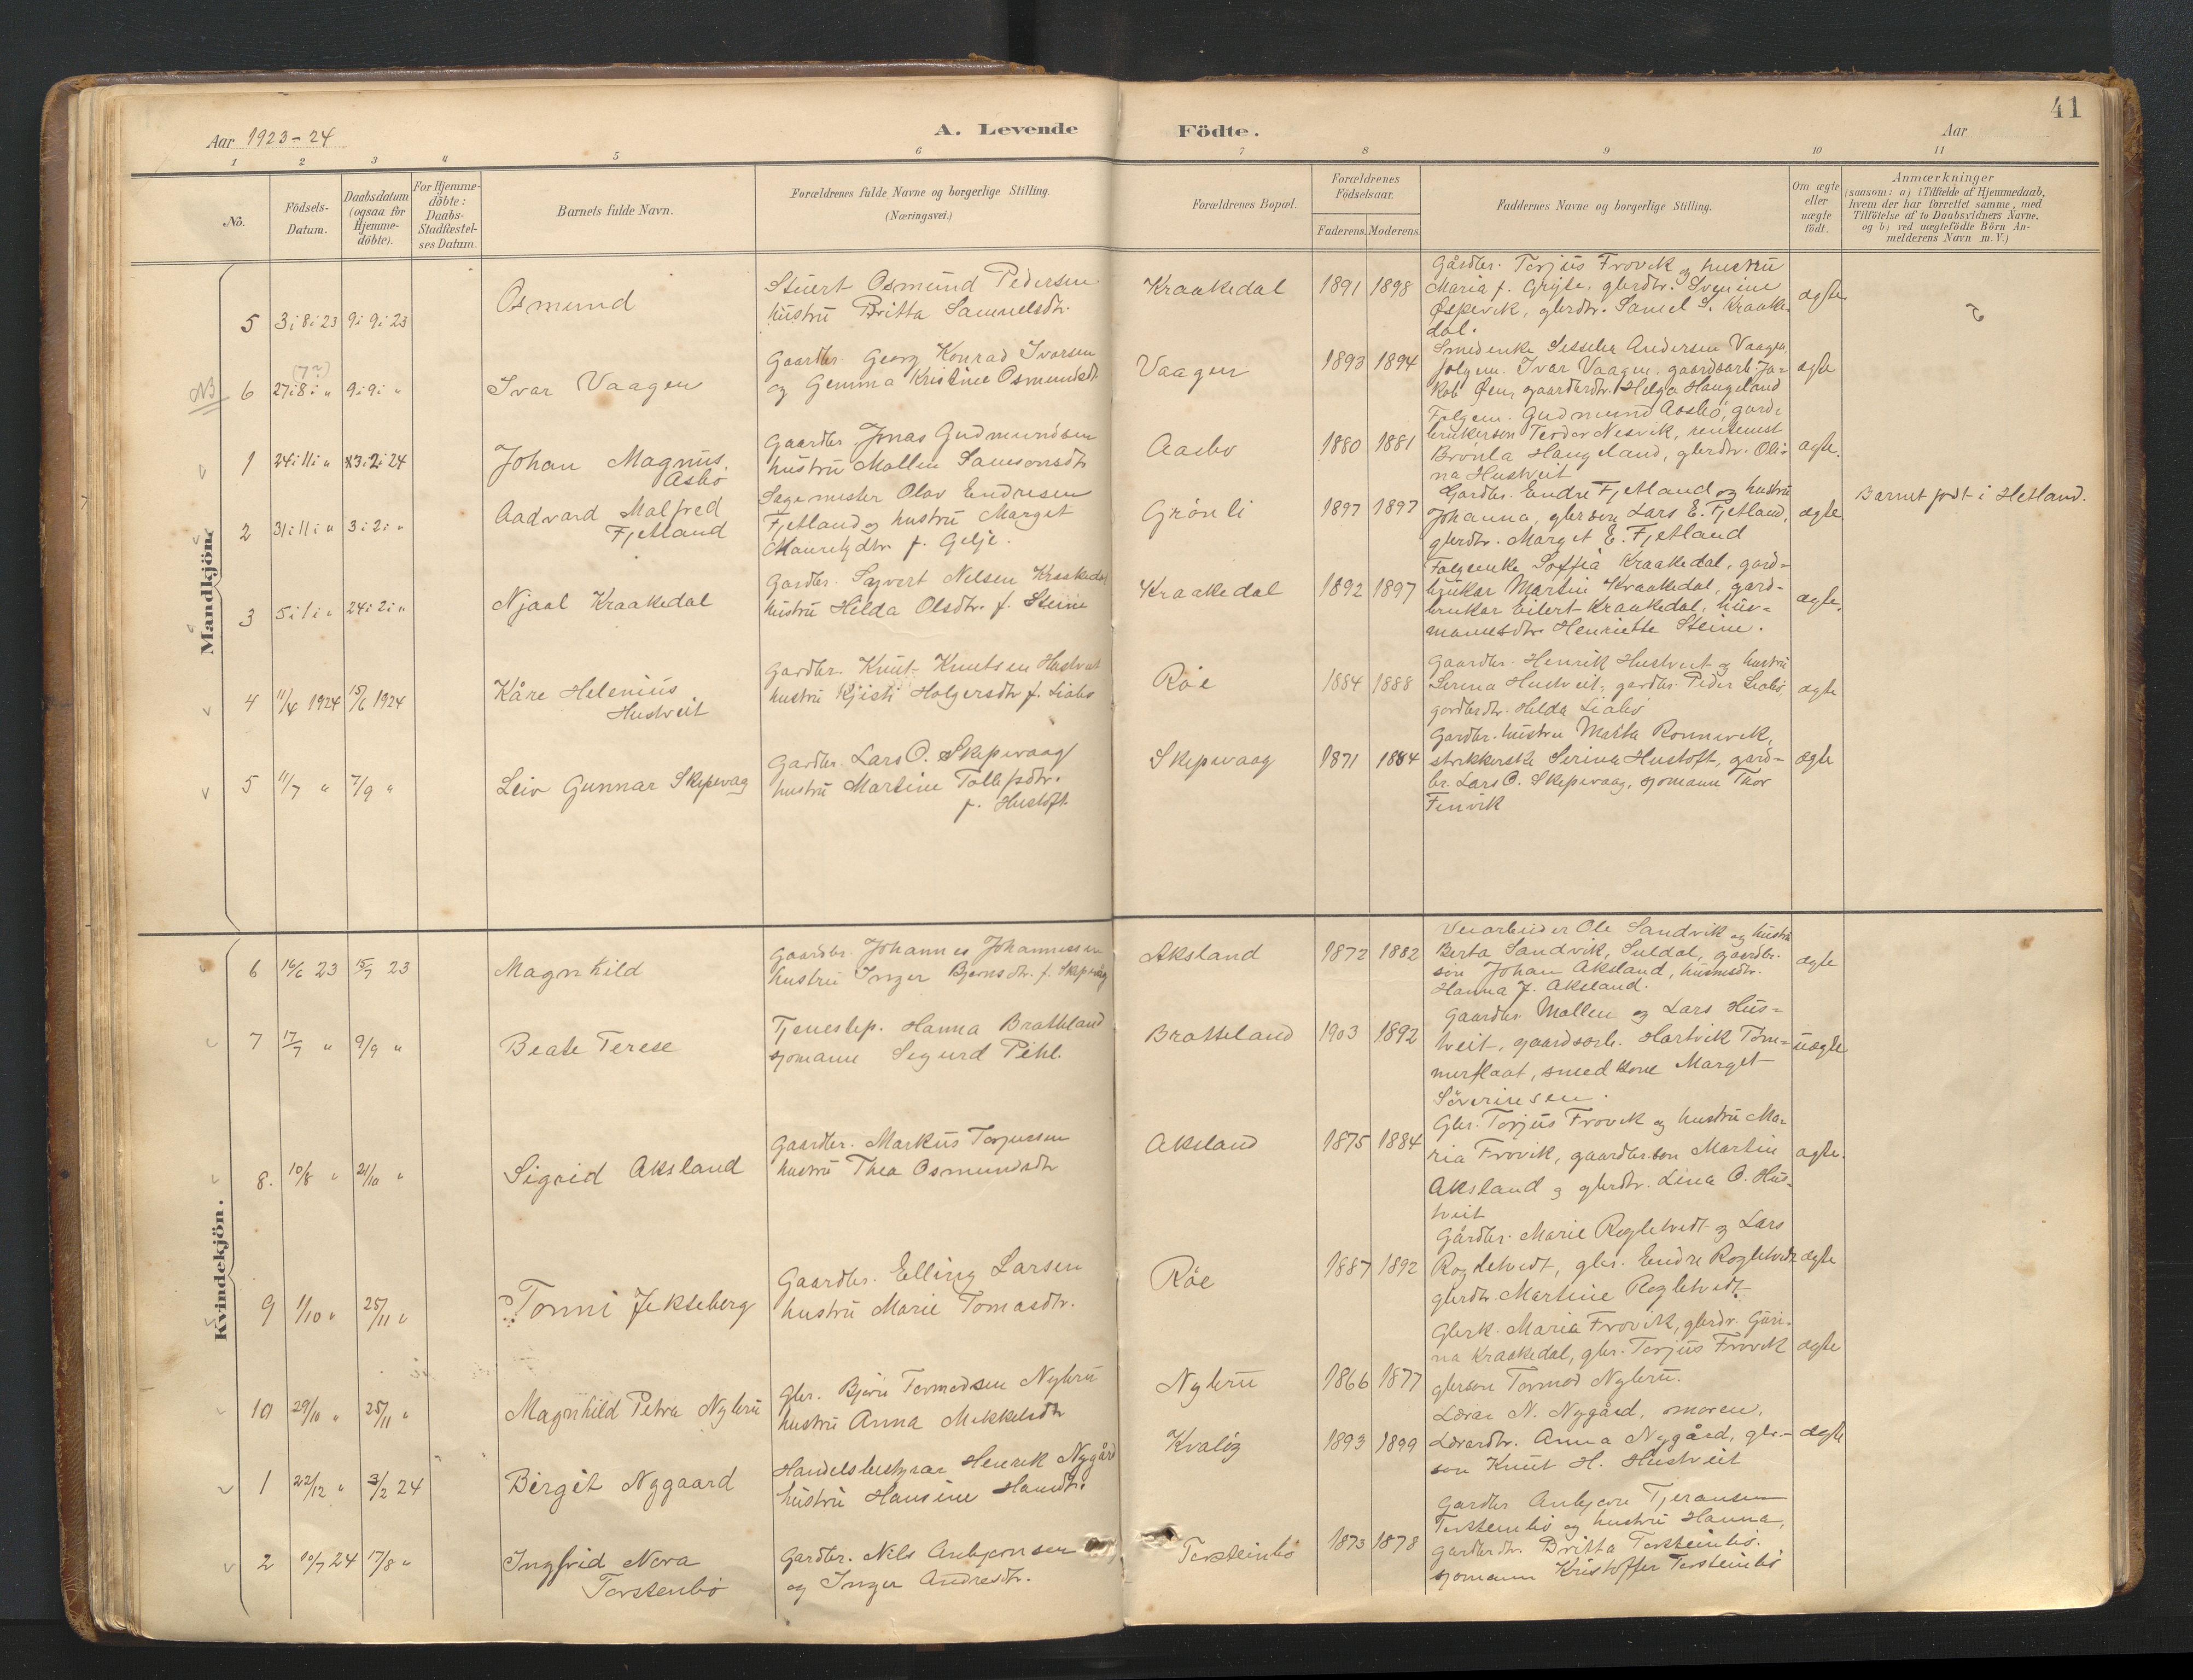 41
Aar 1923-24
A. Levende Födte.
Aar
1 2 3 4 5 6 7 8 9 10 11
No.
Födsels-
Datum.
Daabsdatum
(ogsaa for
Hjemme-
döbte).
For Hjemme-
döbte:
Daabs-
Stadfæstel-
ses Datum.
Barnets fulde Navn.
Forældrenes fulde Navne og borgerlige Stilling.
(Næringsvei.)
Forældrenes Bopæl.
Forældrenes
Födselsaar.
Faderens. Moderens.
Faddernes Navne og borgerlige Stilling.
Om ægte
eller
uægte
födt.
Anmærkninger
(saasom: a) i Tilfælde af Hjemmedaab,
hvem der har forrettet samme, med
Tilföielse af to Daabsvidners Navne.
og b) ved uægtefödte Börn An-
melderens Navn m. V.)
Mandkjön.
5 3i8i23 9i9i23
Osmund
Stuert Osmund Pedersen
hustru Britta Samuelsdtr.
Kraakedal
1891 1898
Gårdbr. Torjus Frovik og hustru
Maria f. Grijte, gbrdtr. Sverine
Øspevik, gbrdtr. Samel S. Kraake-
dal.
ægte
NB 6 27i8i " 9i9i "
(7?)
Ivar Vaagen
Gaardbr. Georg Konrad Ivarsen
og Gemma Kristine Osmundsdt
Vaagen
1893 1894
Smedenke Sesselia Andersen Vaagen,
folgem. Ivar Vaagen, gaardsarb. Ja-
kob Øen, gaardbrdtr. Helga Haugeland
ægte
1 24i11i " 3i2i24
Johan Magnus.
Asbö
Gaardbr. Jonas Gudmundsen
hustru Mallin Samsonsdtr
Aasbo
1880 1881
Folgem. Gudmund Aasbö, gard-
brukerson Teodor Nesvik,
Haugeland, gbrdtr. Oli-
na Hustveit
ægte.
2 31i11i " 3i2i "
Aadvard Malfred
Fjetland
Sagemester Olav Endresen
Fjetland og hustru Marget
Mauritzdtr f. Gilje.
Grönli
1897 1897
Gardbr. Endre Fjetland og hustru
Johanna, gbrson Lars E. Fjetland,
gbrdtr. Marget E. Fjetland
ægte
Barnet født i Hetland.
3 5i1i " 24i2i "
Njaal Kraakedal
Gardbr. Syvert Nelsen Kraakedal
hustru Hilda Olsdtr. f. Steine
Kraakedal
1892 1897
Folgeenke Soffia Kraakedal, gard-
brukar Martin Kraakedal, gard-
brukar Eilert Kraakedal, hus-
mannsdtr Henriette Steine.
ægte.
4 11/4 1924 15/6 1924
Kåre Helenius
Hustveit
Gardbr. Knut Knutsen Hustveit
hustru Kjisti Holgersdtr f. Liabö
Röe
1884 1888
Gaardbr. Henrik Hustveit og hustru
Serina Hustveit, gardbr. Peder Liabö,
gardbrdtr. Hilda Liabö
ægte
5 11/7 " 7/9 "
Leiv Gunnar Skipevag
Gardbr. Lars O. Skipevaag
hustru Martine Tollefsdtr.
f. Hustoft
Skipevaag
1871 1884
Gardbr. hustru Marta Ronnevik,
strikkerske Serina Hustoft, gard-
br. Lars O. Skipevaag, sjomann Thor
Finvik
ægte
Kvindekjön.
6 16/6 23 15/7 23
Magnhild
Gaardbr. Johannes Johannessen
hustru Inger Bjornsdtr. f. Skipevag
Aksland
1872 1882
Veiarbeider Ole Sandvik og hustru
Berta Sandvik, Suldal, gaardbr.
son Johan Aksland, husmsdtr.
Hanna J. Aksland.
ægte
7 17/7 " 9/9 "
Beate Terese
Tjenestep. Hanna Bratteland
sjomann Sigurd Pihl.
Bratteland
1903 1892
Gaardbr. Mallen og Lars Hus-
tveit, gaardsarb. Hartvik Tom-
merflaat, smedkone Marget
Söverinsen.
uægte
8. 10/8 " 21/10 "
Sigrid Aksland
Gaardbr. Markus Torjussen
hustru Thea Osmundsdtr
Aksland
1875 1884
Gbr. Torjus Frovik og hustru Ma-
ria Frovik, gaardbrson Martin
Aksland og gbrdtr. Lina O. Hus-
tveit
ægte.
9 1/10 " 25/11 "
Tonni Jekteberg
Gaardbr. Elling Larsen
hustru Marie Tomasdtr.
Röe
1887 1892
Gårdbr. Marie Rogletvedt og Lars
Rogletvedt, gbr. Endre Rogletvedt
gbrdtr. Martine Rogletvedt.
ægte
10 29/10 " 25/11 "
Magnhild Petra Nybru
Gbr. Bjørn Tormodsen Nybru
hustru Anna Mikkelsdtr
Nybru
1866 1877
Gbrk. Maria Frovik, gbrdr. Guri-
na Kraakedal, gbr. Torjus Frovik
gbrson Tormod Nybru.
ægte
1 22/12 " 3/2 24
Birgit Nygaard
Handelsbestyrar Henrik Nygård
hustru Hansine Hansdtr.
Kvaløy
1893 1899
Lærar N. Nygård, moren,
Lærardtr. Anna Nygård, gbr.-
son Knut H. Hustveit
ægte
2 10/7 24 17/8 "
Ingfrid Nora
Torsteinbö
Gardbr. Nils Anbjornsen
og Inger Andresdtr.
Torsteinbö
1873 1878
Gardbr Anbjørn Tjeransen
Torsteinbö og hustru Hanna,
gardbrdtr. Britta Torsteinbö.
sjomann Kristoffer Torsteinbö